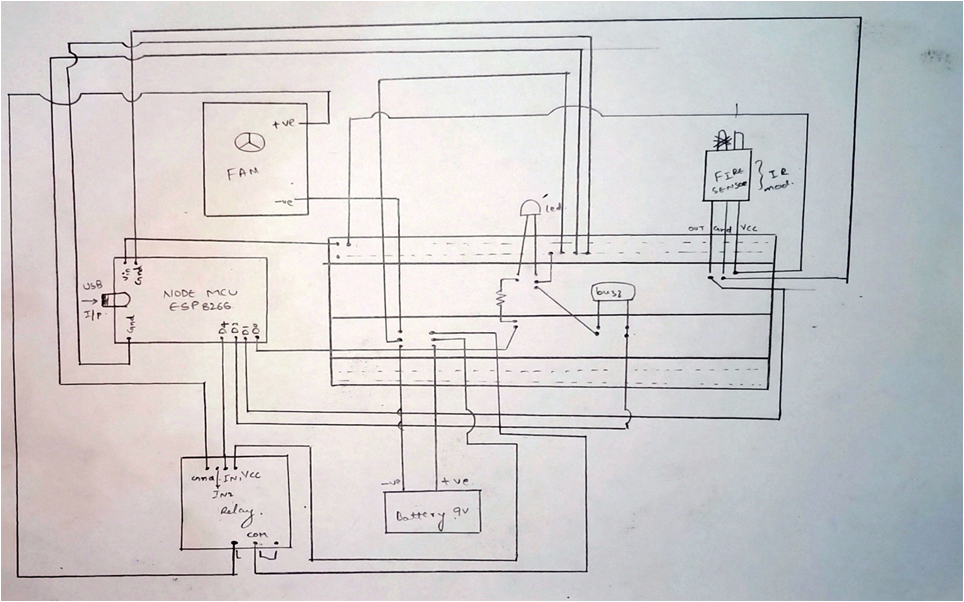 +ve
FAN
-ve
led
FIRE
SENSOR
IR
mod.
OUT Gnd VCC
Vin
Gnd
USB
I/P
NODE MCU
ESP8266
Gnd
D4 D2 D1 D0
buzz
Gnd IN1 VCC
IN2
Relay.
COM
-ve +ve
Battery 9V